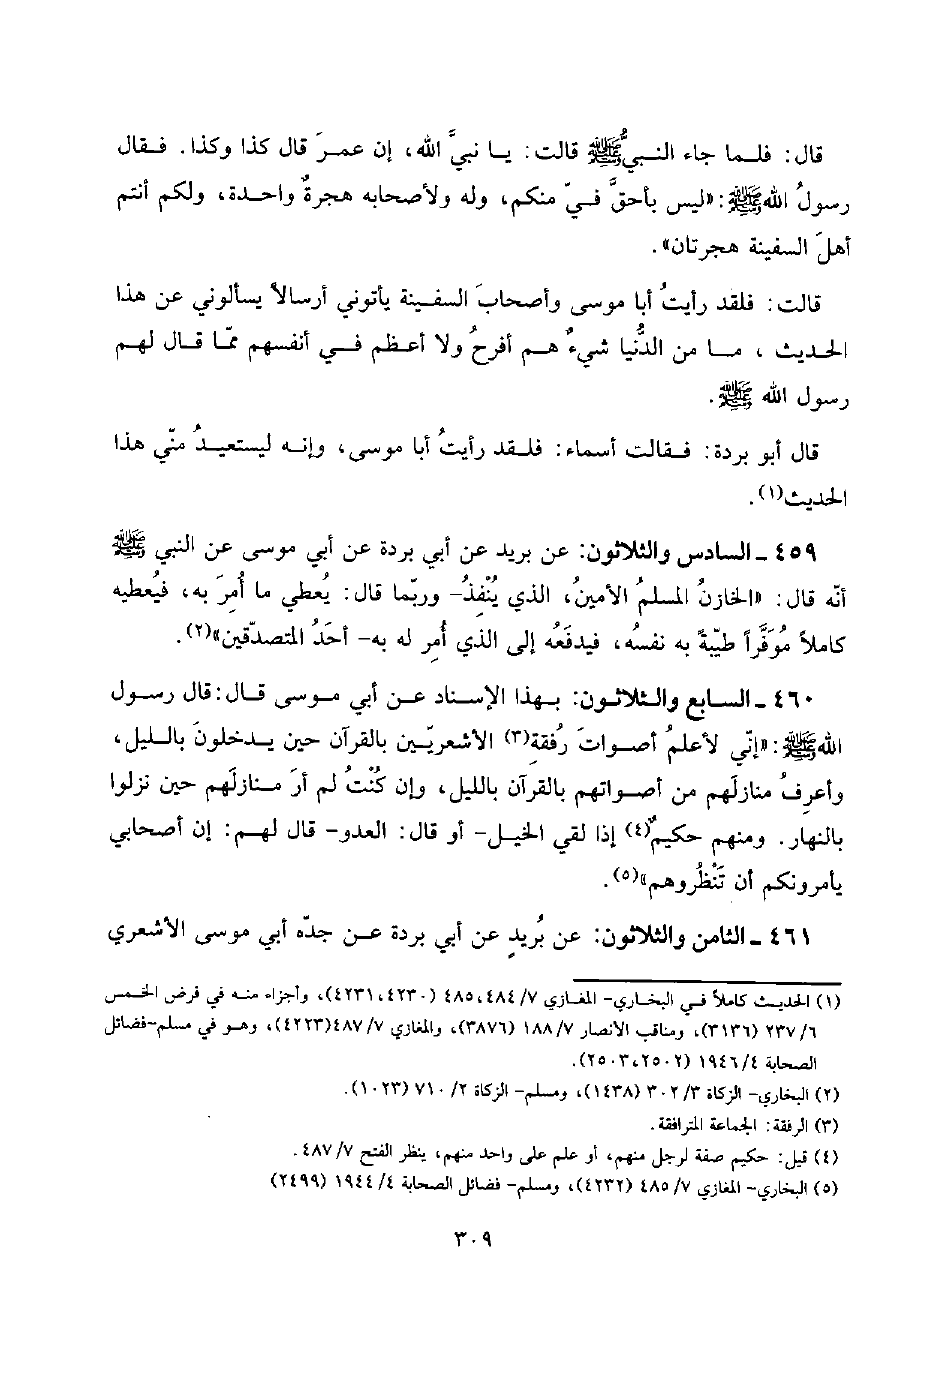 قال: فلـما جاء النـبيُّ ﷺ قالت: يـا نبيَّ الله، إن عمرَ قال كذا وكذا. فـقال
رسولُ الله ﷺ: «ليس بأحقَّ فـيّ منكم، وله ولأصحابه هجرةٌ واحـدة، ولكم أنتم
أهلَ السفينة هجرتان».
قالت: فلقد رأيتُ أبا موسى وأصحابَ السفـينة يأتوني أرسالاً يسألوني عن هذا
الحـديث ، مـا من الدُّنيا شيءٌ هـم أفرحُ ولا أعظم فـي أنفسهم ممّا قـال لهـم
رسول الله ﷺ.
قال أبو بردة: فـقالت أسماء: فلـقد رأيتُ أبا موسى، وإنـه ليستعيـدُ منّي هذا
الحديث(١).
٤٥٩ ـ السادس والثلاثون: عن بريد عن أبي بردة عن أبي موسى عن النبي ﷺ
أنّه قال: «الخازنُ المسلمُ الأمينُ، الذي يُنْفِذُ- وربّما قال: يُعطي ما أُمِرَ به، فيُعطيه
كاملاً مُوَفَّراً طيّبةً به نفسُه، فيدفَعُه إلى الذي أُمِر له به- أحَدُ المتصدّقين»(٢).
٤٦٠ ـ السـابع والثـلاثـون: بـهذا الإسـناد عـن أبي مـوسى قـال: قال رسـول
الله ﷺ: «إنّي لأعلمُ أصـواتَ رُفقةِ(٣) الأشعريّـين بالقرآن حين يـدخلونَ بالـليل،
وأعرِفُ منازلَهم من أصـواتهم بالقرآن بالليل، وإن كُنْتُ لم أرَ مـنازلَهم حين نزلوا
بالنهار. ومنهم حكيمٌ(٤) إذا لقي الخيـل- أو قال: العدو- قال لهـم: إن أصحابي
يأمرونكم أن تَنْظُروهم»(٥).
٤٦١ ـ الثامن والثلاثون: عن بُريدٍ عن أبي بردة عـن جدّه أبي موسى الأشعري
(١) الحديث كاملاً في البخاري- المغازي ٧/ ٤٨٤، ٤٨٥ (٤٢٣٠، ٤٢٣١)، وأجزاء منه في فرض الخمس
٦/ ٢٣٧ (٣١٣٦)، ومناقب الأنصار ٧/ ١٨٨ (٣٨٧٦)، والمغازي ٧/ ٤٨٧(٤٢٢٣)، وهو في مسلم-فضائل
الصحابة ٤/ ١٩٤٦ (٢٥٠٢، ٢٥٠٣).
(٢) البخاري- الزكاة ٣/ ٣٠٢ (١٤٣٨)، ومسلم- الزكاة ٢/ ٧١٠ (١٠٢٣).
(٣) الرفقة: الجماعة المترافقة.
(٤) قيل: حكيم صفة لرجل منهم، أو علم على واحد منهم، ينظر الفتح ٧/ ٤٨٧.
(٥) البخاري- المغازي ٧/ ٤٨٥ (٤٢٣٢)، ومسلم- فضائل الصحابة ٤/ ١٩٤٤ (٢٤٩٩)
٣٠٩